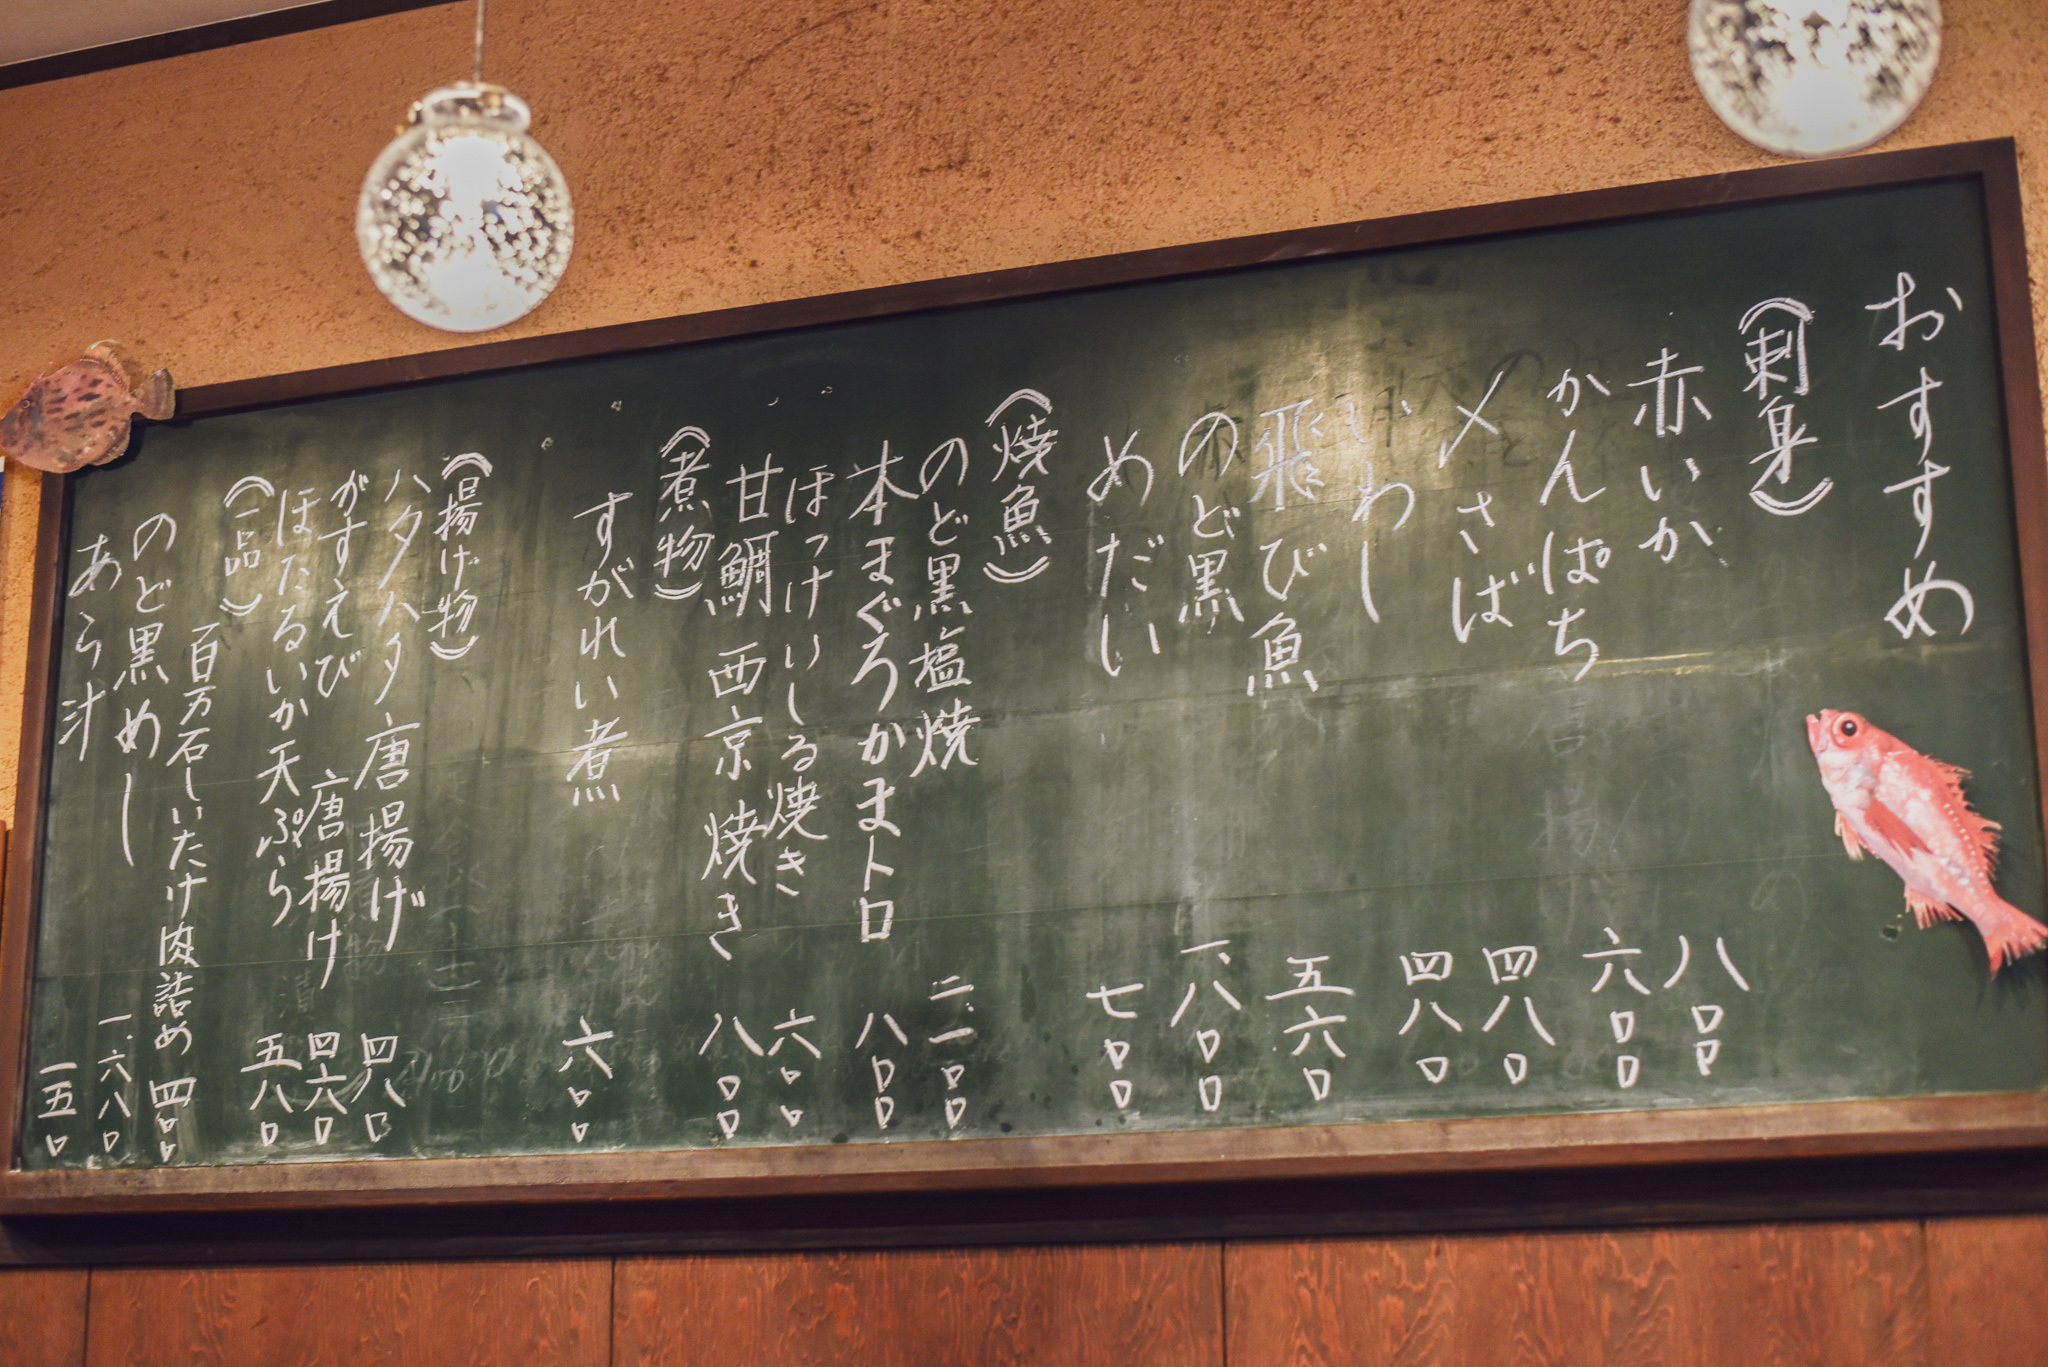 おすすめ
《刺身》
赤いか 八〇〇
かんぱち 六〇〇
〆さば 四八〇
いわし 四八〇
飛び魚 五六〇
のど黒 一、八〇〇
めだい 七〇〇
《焼魚》
のど黒塩焼 二、一〇〇
本まぐろかまトロ 八〇〇
ほっけいしる焼き 六〇〇
甘鯛西京焼き 八〇〇
《煮物》
すがれい煮 六〇〇
《揚げ物》
ハタハタ唐揚げ 四八〇
がすえび唐揚け 四六〇
ほたるいか天ぷら 五八〇
《一品》
百万石しいたけ肉詰め 四〇〇
のど黒めし 一、六八〇
あら汁 一五〇